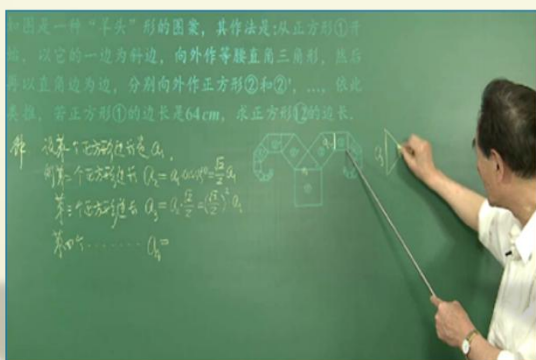 如图是一种“羊头”形的图案，其作法是：从正方形①开
始，以它的一边为斜边，向外作等腰直角三角形，然后
再以直角边为边，分别向外作正方形②和②'，…，依此
类推，若正方形①的边长是64cm，求正方形⑫的边长．
解 设第一个正方形边长是 a₁，
则第二个正方形边长 a₂=a₁cos45°=√2/2 a₁
第三个正方形边长 a₃=a₂·√2/2=(√2/2)²·a₁
第四个········ a₄=